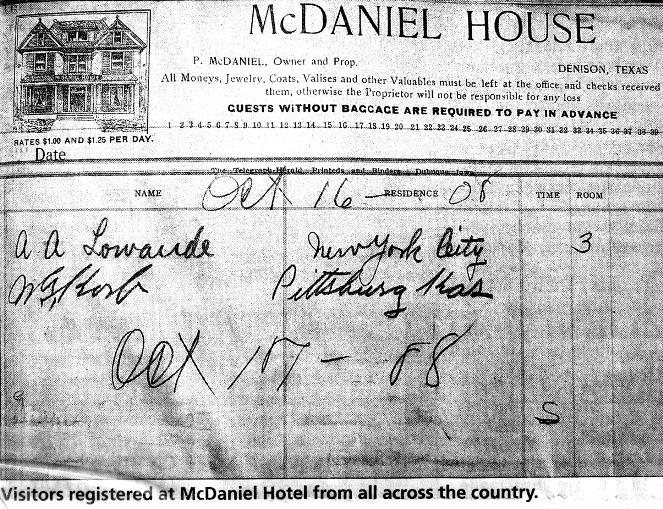 McDANIEL HOUSE
P. McDANIEL, Owner and Prop.
DENISON, TEXAS
All Moneys, Jewelry, Coats, Valises and other Valuables must be left at the office and checks received
them, otherwise the Proprietor will not be responsible for any loss
GUESTS WITHOUT BAGGAGE ARE REQUIRED TO PAY IN ADVANCE
1 2 3 4 5 6 7 8 9 10 11 12 13 14 15 16 17 18 19 20 21 22 23 24 25 26 27 28 29 30 31 32 33 34 35 36 37 38 39
RATES $1.00 AND $1.25 PER DAY.
Date
The Telegraph-Herald, Printers and Binders, Dubuque, Iowa
Oct 16 - 08
NAME RESIDENCE TIME ROOM
A A Lowande New York City 3
Korb Pittsburg Kas
Oct 17 - 08
S
Visitors registered at McDaniel Hotel from all across the country.